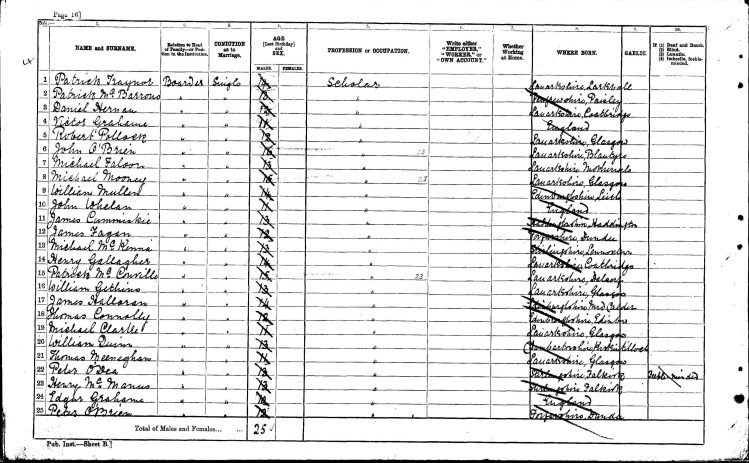 Page 16]
NAME and SURNAME. Relation to Head of Family—or Position in the Institution. CONDITION as to Marriage. AGE [Last Birthday] and SEX. PROFESSION or OCCUPATION. Write either "EMPLOYER," "WORKER," or "OWN ACCOUNT." Whether Working at Home. WHERE BORN. GAELIC. If (1) Deaf and Dumb. (2) Blind. (3) Lunatic. (4) Imbecile, feeble-minded.
MALES. FEMALES.
1 Patrick Traynor Boarder Single Scholar Lanarkshire, Larkhall
2 Patrick McBarrons " " " Renfrewshire, Paisley
3 Daniel Hernan " " " Lanarkshire, Coatbridge
4 Victor Grahame " " " England
5 Robert Pollock " " " Lanarkshire, Glasgow
6 John O'Brien " " " 23 Lanarkshire, Blantyre
7 Michael Faloon " " " Lanarkshire Motherwell
8 Michael Mooney " " " 23 Lanarkshire, Glasgow
9 William Mullen " " " Edinburghshire, Leith
10 John Whelan " " " England
11 James Cumminskie " " " Haddington
12 James Fagan " " " Forfarshire, Dundee
13 Michael McKenna " " " Stirlingshire, Lennoxtown
14 Henry Gallagher " " " Lanarkshire, Coatbridge
15 Patrick McConville " " " 23 Lanarkshire, Dalserf
16 William Githins " " " Lanarkshire, Glasgow
17 James Halloran " " " Edinburghshire, Mid Calder
18 Thomas Connolly " " " Edinburghshire, Edinbro
19 Michael Charlie " " " Lanarkshire, Glasgow
20 William Quinn " " " Dumbartonshire, Kirkintilloch
21 Thomas Meeneghan " " " Lanarkshire, Glasgow
22 Peter O'Dea " " " Stirlingshire Falkirk Feeble minded
23 Henry McManus " " " Stirlingshire Falkirk
24 Edgar Grahame " " " England
25 Peter O'Brien " " " Forfarshire, Dundee
Total of Males and Females... ... 25
Pub. Inst.—Sheet B.]